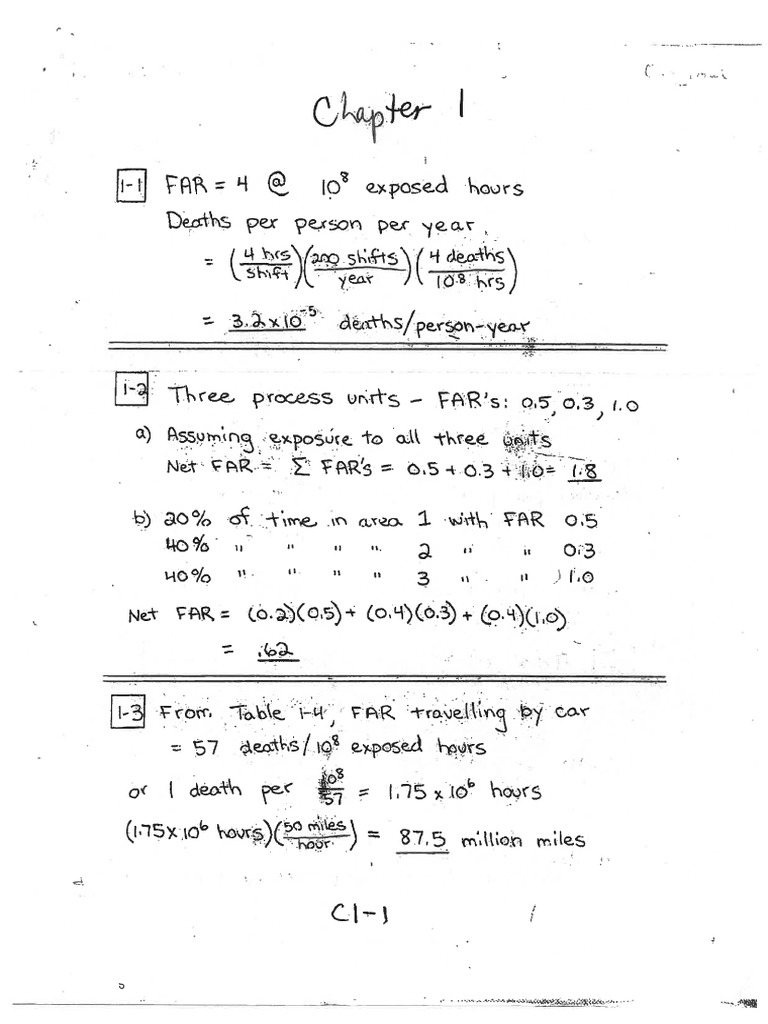 Chapter 1
1-1 FAR = 4 @ 10⁸ exposed hours
Deaths per person per year
= (4 hrs/shift)(200 shifts/year)(4 deaths/10⁸ hrs)
= 3.2 x 10⁻⁵ deaths/person-year
1-2 Three process units - FAR's: 0.5, 0.3, 1.0
a) Assuming exposure to all three units
Net FAR = Σ FAR's = 0.5 + 0.3 + 1.0 = 1.8
b) 20% of time in area 1 with FAR 0.5
40% " " " " 2 " " 0.3
40% " " " " 3 " " 1.0
Net FAR = (0.2)(0.5) + (0.4)(0.3) + (0.4)(1.0)
= .62
1-3 From Table 1-4, FAR travelling by car
= 57 deaths/10⁸ exposed hours
or 1 death per 10⁸/57 = 1.75 x 10⁶ hours
(1.75 x 10⁶ hours)(50 miles/hour) = 87.5 million miles
C1-1